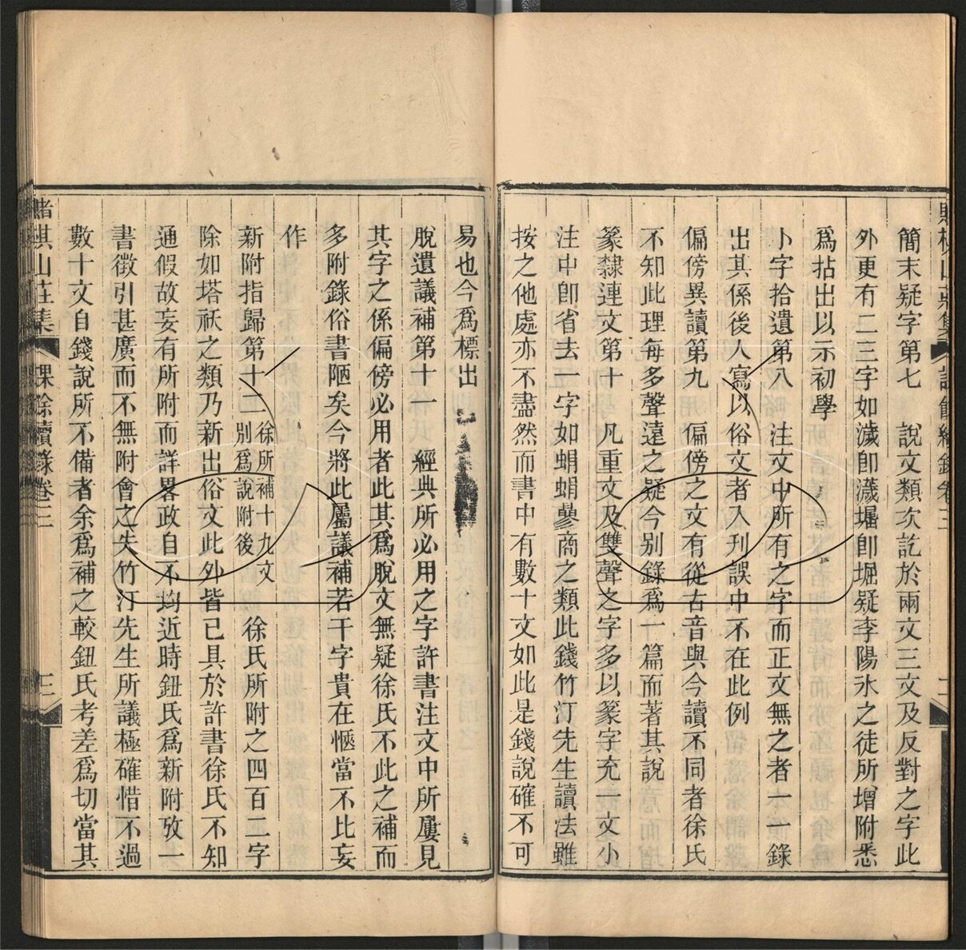 簡末疑字第七　說文類次訖於兩文三文及反對之字此
外更有二三字如濊卽瀎堀卽堀疑李陽氷之徒所增附悉
爲拈出以示初學
卜字拾遺第八　注文中所有之字而正文無之者一一錄
出其係後人寫以俗文者入刊誤中不在此例
偏傍異讀第九　偏傍之文有從古音與今讀不同者徐氏
不知此理每多聲遠之疑今别錄爲一篇而著其說
篆隸連文第十　凡重文及雙聲之字多以篆字充一文小
注中卽省去一字如蜎蜎參商之類此錢竹汀先生讀法雖
按之他處亦不盡然而書中有數十文如此是錢說確不可
易也今爲標出
脫遺議補第十一　經典所必用之字許書注文中所屢見
其字之係偏傍必用者此其爲脫文無疑徐氏不此之補而
多附錄俗書陋矣今將此屬議補若干字貴在愜當不比妄
作
新附指歸第十二　徐所補十九文别爲說附後　徐氏所附之四百二字
除如塔祆之類乃新出俗文此外皆已具於許書徐氏不知
通假故妄有所附而詳畧政自不均近時鈕氏爲新附攷一
書徵引甚廣而不無附會之失竹汀先生所議極確惜不過
數十文自錢說所不備者余爲補之較鈕氏考差爲切當其
賭棋山莊集　課餘續錄卷三　三